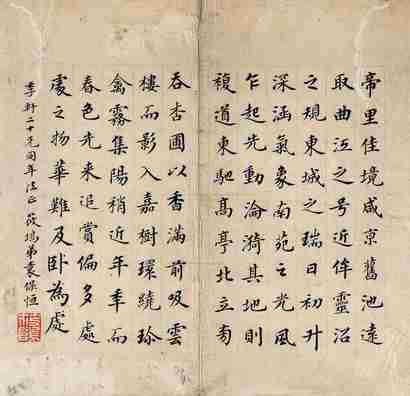 帝里佳境咸京舊池遠
取曲江之号近侔靈沼
之規東城之瑞日初升
深涵氣象南苑之光風
乍起先動淪漪其地則
複道東馳髙亭北立旁
吞杏圃以香滿前吸雲
樓而影入嘉樹環繞珎
禽霧集陽稍近年年而
春色先来追賞偏多處
處之物華難及卧為處
季軒二十先同年法正 筱塢弟袁保恒